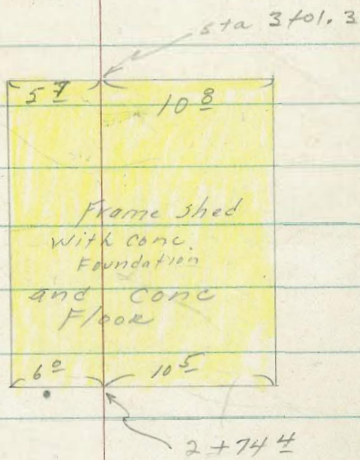 sta 3+01.3
5 7 10 8
Frame shed
with conc.
Foundation
and conc
Floor
6 0 10 5
2 + 74 4